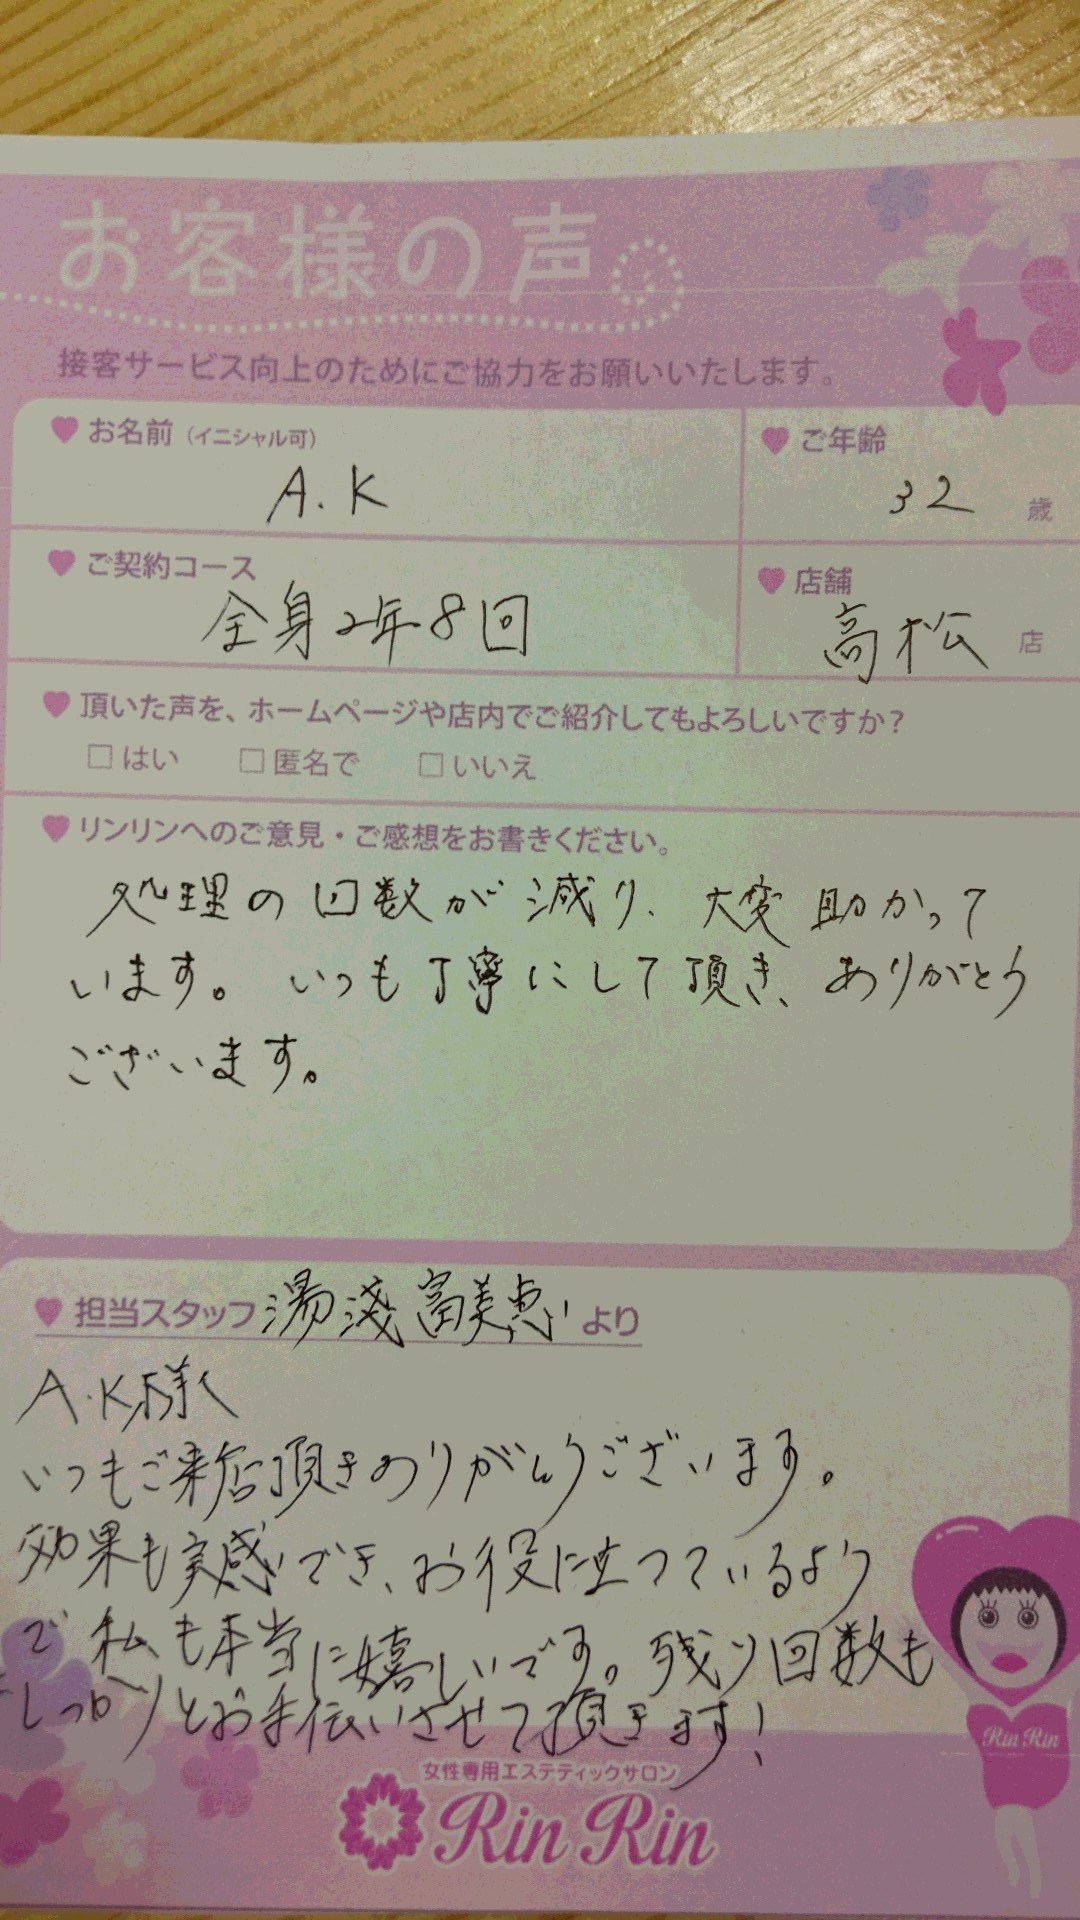 お客様の声
接客サービス向上のためにご協力をお願いいたします。
お名前（イニシャル可）
A.K
ご年齢
32 歳
ご契約コース
全身2年8回
店舗
高松 店
頂いた声を、ホームページや店内でご紹介してもよろしいですか？
□はい □匿名で □いいえ
リンリンへのご意見・ご感想をお書きください。
処理の回数が減り、大変助かって
います。いつも丁寧にして頂き、ありがとう
ございます。
担当スタッフ 湯淺富美恵 より
A.K様へ
いつもご来店頂きありがとうございます。
効果も実感でき、お役に立っているよう
で私も本当に嬉しいです。残り回数も
しっかりとお手伝いさせて頂きます！
Rin Rin
女性専用エステティックサロン
Rin Rin